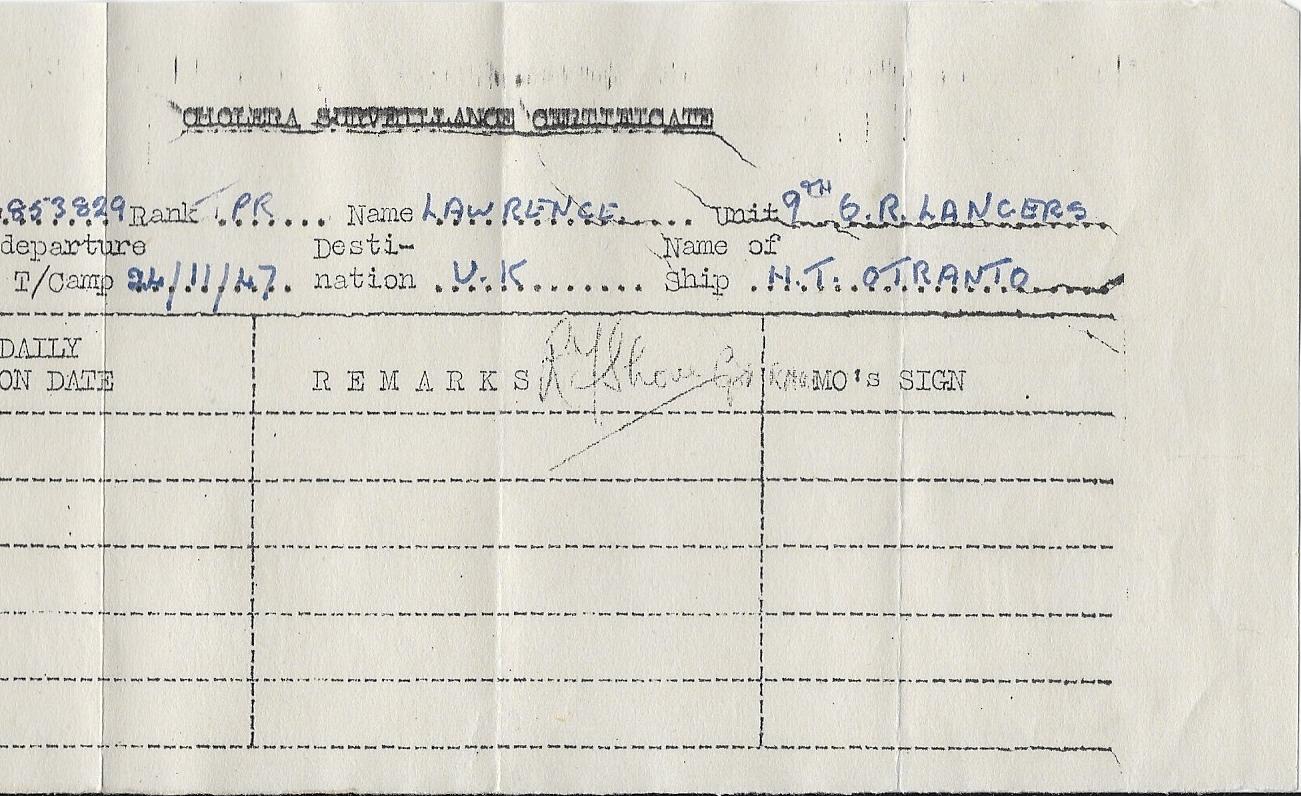 CHOLERA SURVEILLANCE CERTIFICATE
853829 Rank TPR... Name LAWRENCE..... Unit 9TH Q.R. LANCERS
departure Desti- Name of
T/Camp 24/11/47. nation .U.K....... Ship .H.T. OTRANTO
DAILY
ON DATE R E M A R K S MO's SIGN